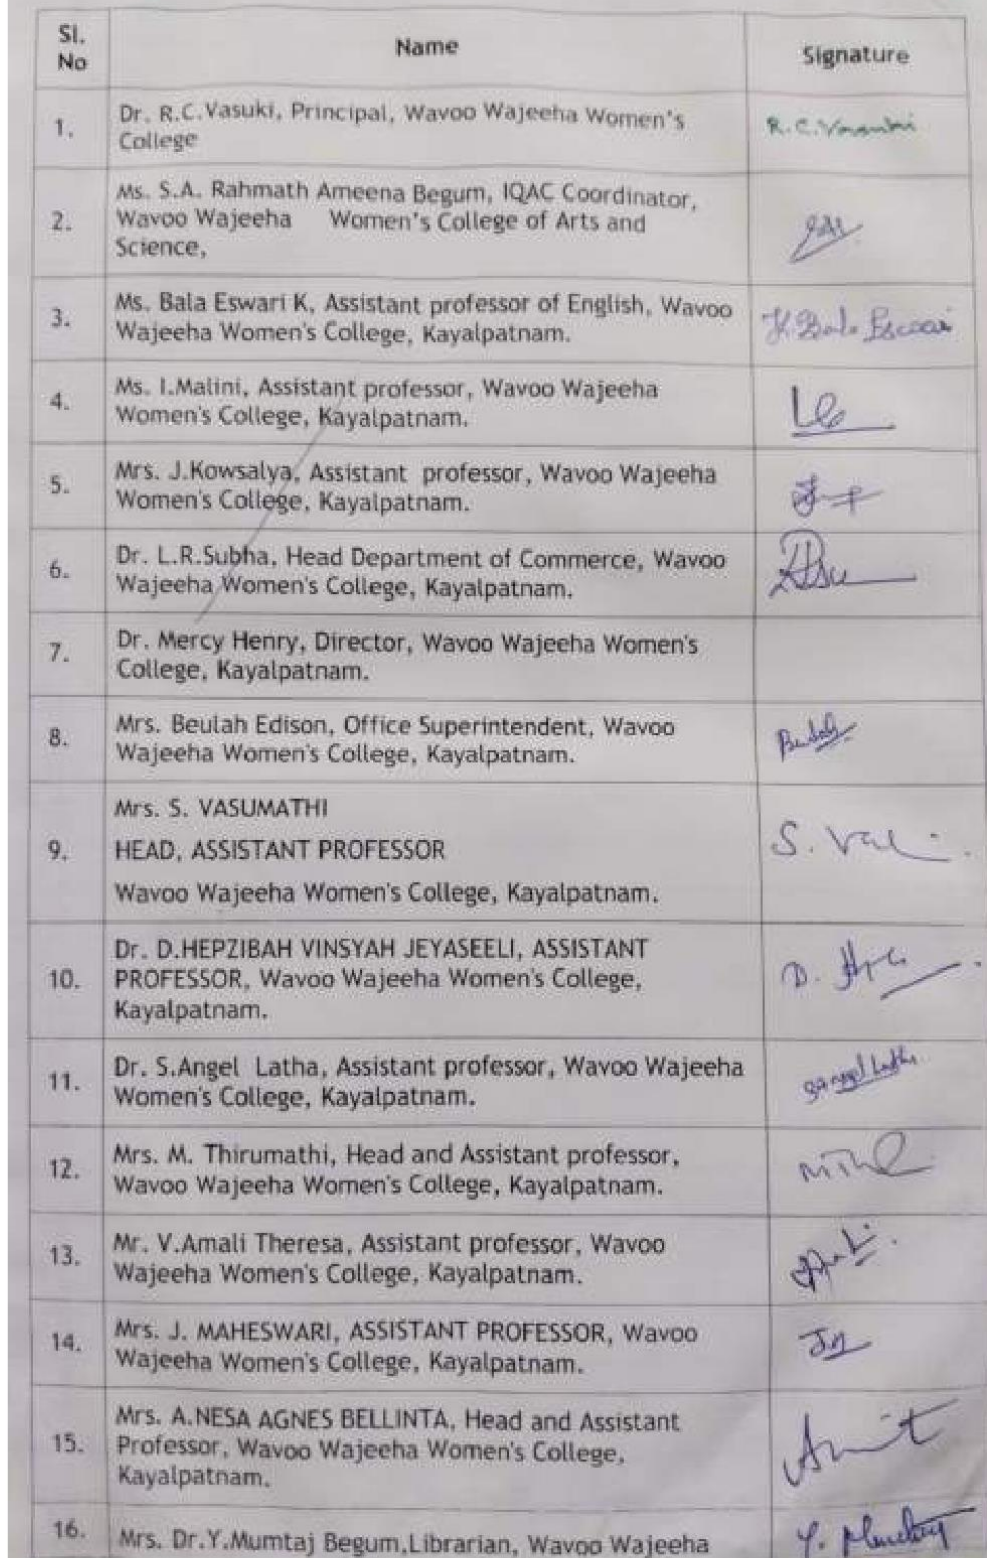 Sl. No
Name
Signature
1.
Dr. R.C.Vasuki, Principal, Wavoo Wajeeha Women's
College
R.C.Vasuki
2.
Ms. S.A. Rahmath Ameena Begum, IQAC Coordinator,
Wavoo Wajeeha Women's College of Arts and
Science,
3.
Ms. Bala Eswari K, Assistant professor of English, Wavoo
Wajeeha Women's College, Kayalpatnam.
K. Bala Eswari
4.
Ms. I.Malini, Assistant professor, Wavoo Wajeeha
Women's College, Kayalpatnam.
5.
Mrs. J.Kowsalya, Assistant professor, Wavoo Wajeeha
Women's College, Kayalpatnam.
6.
Dr. L.R.Subha, Head Department of Commerce, Wavoo
Wajeeha Women's College, Kayalpatnam.
7.
Dr. Mercy Henry, Director, Wavoo Wajeeha Women's
College, Kayalpatnam.
8.
Mrs. Beulah Edison, Office Superintendent, Wavoo
Wajeeha Women's College, Kayalpatnam.
9.
Mrs. S. VASUMATHI
HEAD, ASSISTANT PROFESSOR
Wavoo Wajeeha Women's College, Kayalpatnam.
S.
10.
Dr. D.HEPZIBAH VINSYAH JEYASEELI, ASSISTANT
PROFESSOR, Wavoo Wajeeha Women's College,
Kayalpatnam.
D.
11.
Dr. S.Angel Latha, Assistant professor, Wavoo Wajeeha
Women's College, Kayalpatnam.
S Angel Latha
12.
Mrs. M. Thirumathi, Head and Assistant professor,
Wavoo Wajeeha Women's College, Kayalpatnam.
13.
Mr. V.Amali Theresa, Assistant professor, Wavoo
Wajeeha Women's College, Kayalpatnam.
14.
Mrs. J. MAHESWARI, ASSISTANT PROFESSOR, Wavoo
Wajeeha Women's College, Kayalpatnam.
15.
Mrs. A.NESA AGNES BELLINTA, Head and Assistant
Professor, Wavoo Wajeeha Women's College,
Kayalpatnam.
16.
Mrs. Dr.Y.Mumtaj Begum,Librarian, Wavoo Wajeeha
Y.